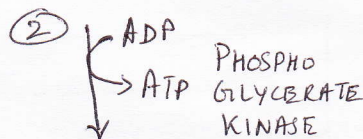 ② ADP
ATP PHOSPHO
GLYCERATE
KINASE